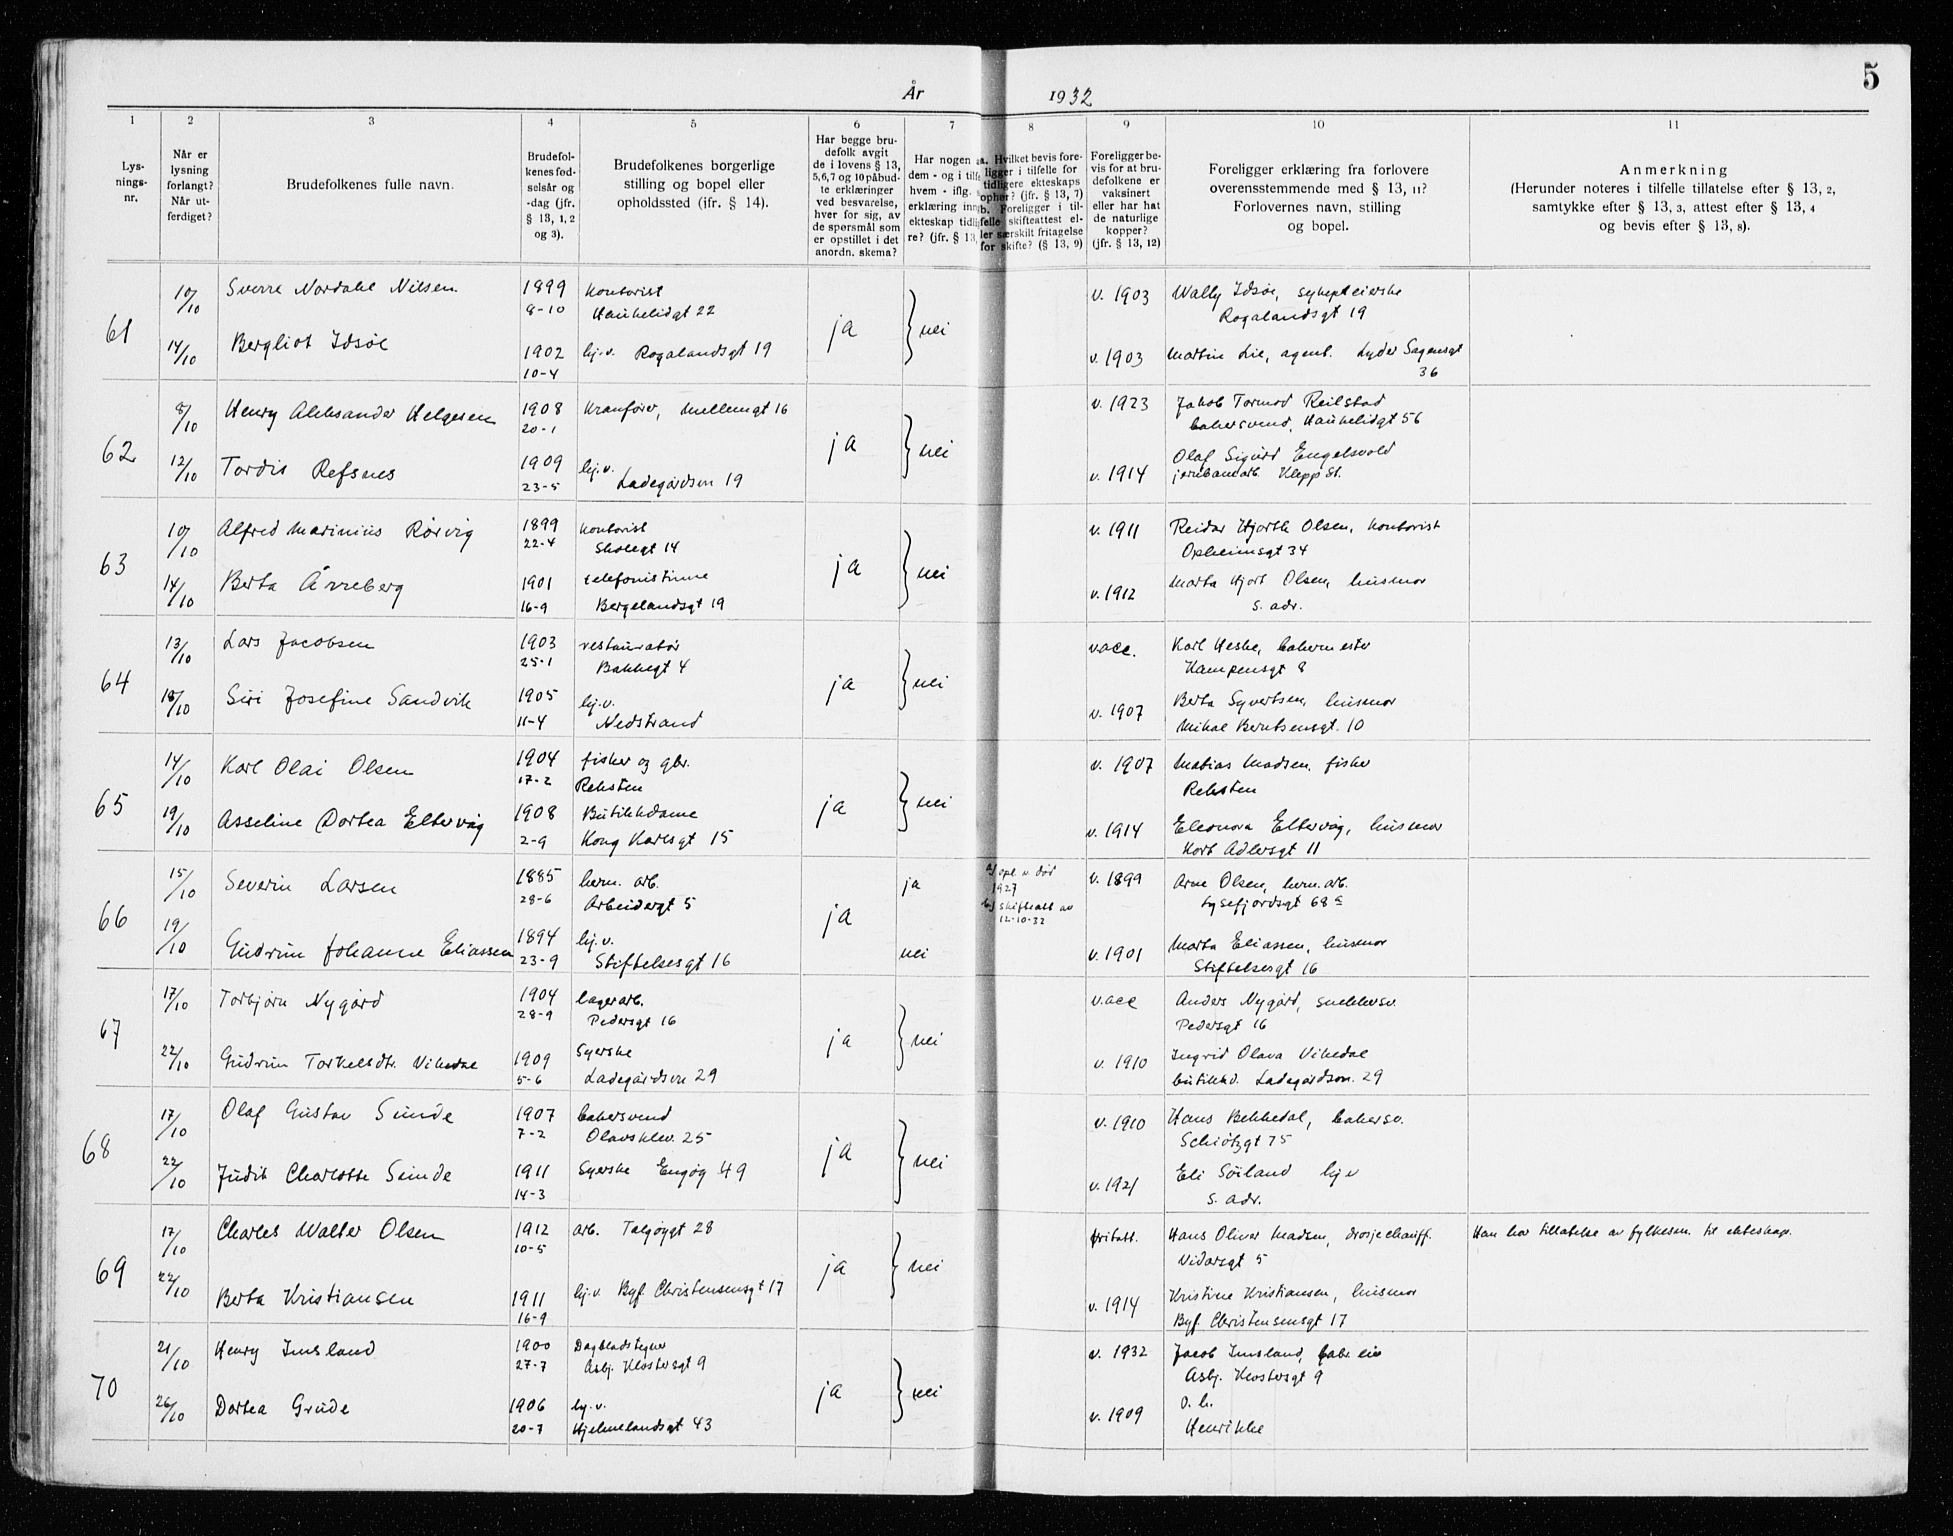 5
År 1932
1 2 3 4 5 6 7 8 9 10 11
Lys-
nings-
nr.
Når er
lysning
forlangt?
Når ut-
ferdiget?
Brudefolkenes fulle navn.
Brudefol-
kenes fød-
selsår og
-dag (jfr.
§ 13, 1, 2
og 3).
Brudefolkenes borgerlige
stilling og bopel eller
opholdssted (ifr. § 14).
Har begge bru-
defolk avgit
de i lovens § 13,
5, 6, 7 og 10 påbud-
te erklæringer
ved besvarelse,
hver for sig, av
de spørsmål som
er opstillet i det
anordn. skema?
Har nogen a
dem - og i tilfe
hvem - iflg.
erklæring inng
ekteskap tidlig
re? (jfr. § 13,
a. Hvilket bevis fore-
ligger i tilfelle for
tidligere ekteskaps
ophør? (jfr. § 13, 7)
b. Foreligger i til-
felle skifteattest el-
ler særskilt fritagelse
for skifte? (§ 13, 9)
Foreligger be-
vis for at bru-
defolkene er
vaksinert
eller har hat
de naturlige
kopper?
(jfr. § 13, 12)
Foreligger erklæring fra forlovere
overensstemmende med § 13, 11?
Forlovernes navn, stilling
og bopel.
Anmerkning
(Herunder noteres i tilfelle tillatelse efter § 13, 2,
samtykke efter § 13, 3, attest efter § 13, 4
og bevis efter § 13, 8).
61 10/10 Sverre Nordahl Nilsen 1899 kontorist ja nei v. 1903 Wally Idsøe, sykepleierske
8-10 Haukelidgt 22 Rogalandsgt 19
14/10 Bergliot Idsøe 1902 hj.v. Rogalandsgt 19 v. 1903 Martin Lie, agent. Lyder Sagensgt
10-4 36
62 8/10 Henry Aleksander Helgesen 1908 kranfører, Mellemgt 16 ja nei v. 1923 Jakob Tormod Reilstad
20-1 bakersvend, Haukelidgt 56
12/10 Tordis Refsnes 1909 hj.v. v. 1914 Olaf Sigurd Engelsvold
23-5 Ladegårdsvn 19 jernbanearb. Klepp St.
63 10/10 Alfred Marinius Rørvig 1899 kontorist ja nei v. 1911 Reidar Hjorth Olsen, kontorist
22-4 Skolegt 14 Opheimsgt 34
14/10 Berta Årreberg 1901 telefonistinne v. 1912 Marta Hjort Olsen, husmor
16-9 Bergelandsgt 19 s. adr.
64 13/10 Lars Jacobsen 1903 restauratør ja nei vacc. Karl Heske, bakermester
25-1 Bakkegt 4 Kampensgt 8
18/10 Siri Josefine Sandvik 1905 hj.v. v. 1907 Berta Syvertsen, husmor
11-4 Nedstrand Mikal Berntsensgt. 10
65 14/10 Karl Olai Olsen 1904 fisker og gbr. ja nei v. 1907 Matias Madsen, fisker
17-2 Reksten Reksten
19/10 Asseline Dortea Eltervåg 1908 Butikkdame v. 1914 Eleonora Eltervåg, husmor
2-9 Kong Karlsgt 15 Kort Adlersgt 11
66 15/10 Severin Larsen 1885 herm. arb. ja ja a) opl. v. død v. 1899 Arne Olsen, herm. arb.
28-6 Arbeidergt 5 1927 Lysefjordsgt 68 a
b) skifteatt av
12-10-32
19/10 Gudrun Johanne Eliassen 1894 hj.v. nei v. 1901 Marta Eliassen, husmor
23-9 Stiftelsesgt 16 Stiftelsesgt 16
67 17/10 Torbjørn Nygård 1904 lagerarb. ja nei vacc Anders Nygård, snekkersv.
28-9 Pedersgt 16 Pedersgt 16
22/10 Gudrun Torkelsdtr. Vikedal 1909 Syerske v. 1910 Ingrid Olava Vikedal
5-6 Ladegårdsvn 29 butikkd. Ladegårdsvn. 29
68 17/10 Olaf Gustav Sunde 1907 bakersvend ja nei v. 1910 Hans Bekkedal, bakersv.
7-2 Olavsklev. 25 Schiøtzgt 75
22/10 Judit Charlotte Sunde 1911 Syerske Engøg 49 v. 1921 Eli Söiland hj v
14-3 s. adr.
69 17/10 Charles Walter Olsen 1912 arb. Talgøygt 28 ja nei fritatt. Hans Oliver Madsen, drosjechauff. Han har tillatelse av fylkesm. til ekteskap.
10-5 Vidarsgt 5
22/10 Berta Kristiansen 1911 hj.v. Byf. Christensensgt 17 v. 1914 Kristine Kristiansen, husmor
16-9 Byf. Christensensgt 17
70 21/10 Henry Imsland 1900 Dagbladstegner ja nei v. 1932 Jacob Imsland, fabr. eier
27-7 Asbj. Klostersgt 9 Asbj. Klostersgt 9
26/10 Dortea Grude 1906 hj.v. v. 1909 o. h.
20-7 Hjelmelandsgt 43 Henrikke